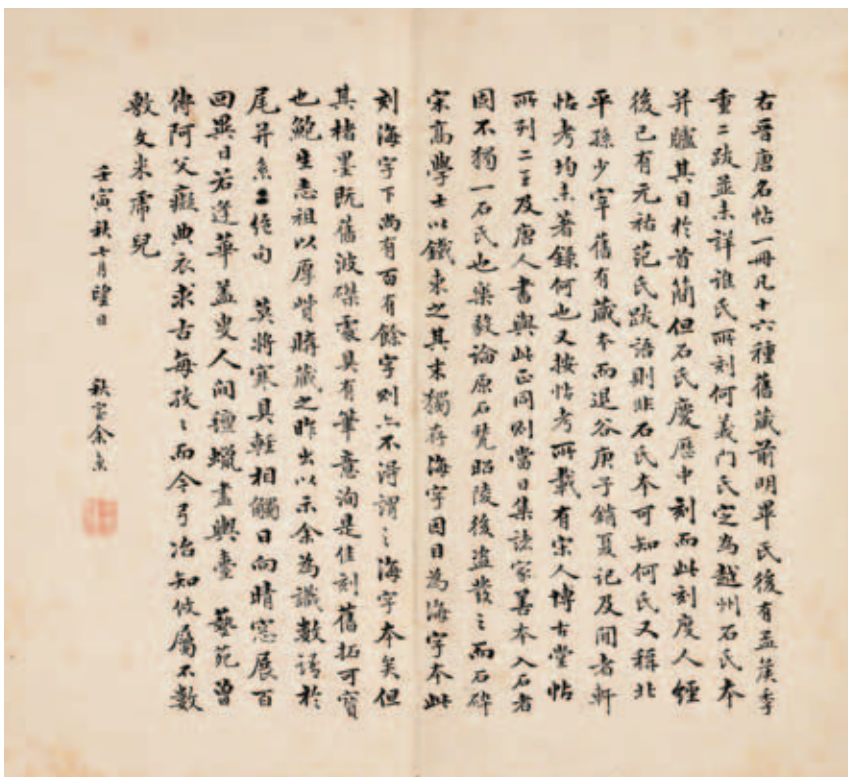 右晉唐名帖一冊凡十六種舊藏前明畢氏後有孟蓀季
重二跋並未詳誰氏所刻何義門氏定為越州石氏本
并臚其目於首簡但石氏慶歷中刻而此刻度人經
後已有元祐范氏跋語則非石氏本可知何氏又稱北
平孫少宰舊有藏本而退谷庚子銷夏記及閒者軒
帖考均未著錄何也又按帖考所載有宋人博古堂帖
所列二王及唐人書與此正同則當日集諸家善本入石者
固不獨一石氏也樂毅論原石殉昭陵後盜發之而石碎
宋高學士以鐵束之其末獨存海字因目為海字本此
刻海字下尚有百有餘字則亦不得謂之海字本矣但
其楮墨既舊波磔處具有筆意洵是佳刻舊拓可寶
也鮑生志祖以厚貲購藏之昨出以示余為識數語於
尾并系二絕句 莫將寒具輕相觸日向晴窓展百
回異日若逢華蓋叟人間氊蠟盡輿臺 藝苑曾
傳阿父癡典衣求古每孜々而今弓冶知攸屬不數
敷文米虎兒
壬寅秋七月望日 秋室余集